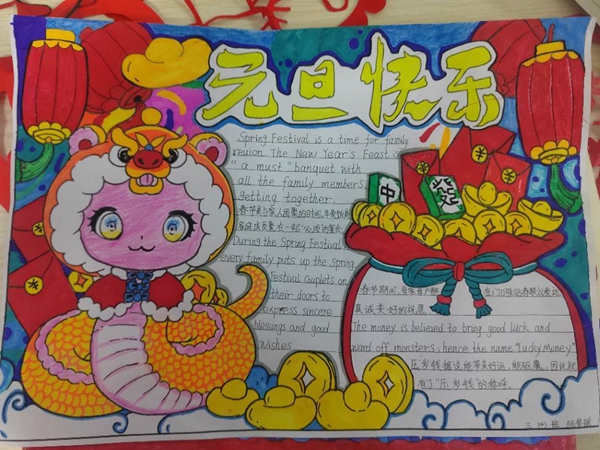 元旦快乐
Spring Festival is a time for family
reunion. The New Year's Feast is
"a must" banquet with
all the family members
getting together.
春节是与家人团聚的时间,年夜饭是
家庭成员聚在一起"必
During the Spring Festival,
every family puts up the Spring
Festival couplets on
their doors to
express sincere
and good
wishes
中
發
春节期间,
真诚美好的祝愿
The money is believed to bring good luck and
ward off monsters, hence the name "Lucky Money"
压岁钱据说能带来好运,驱魔。因此就
有了"压岁钱"的称呼。